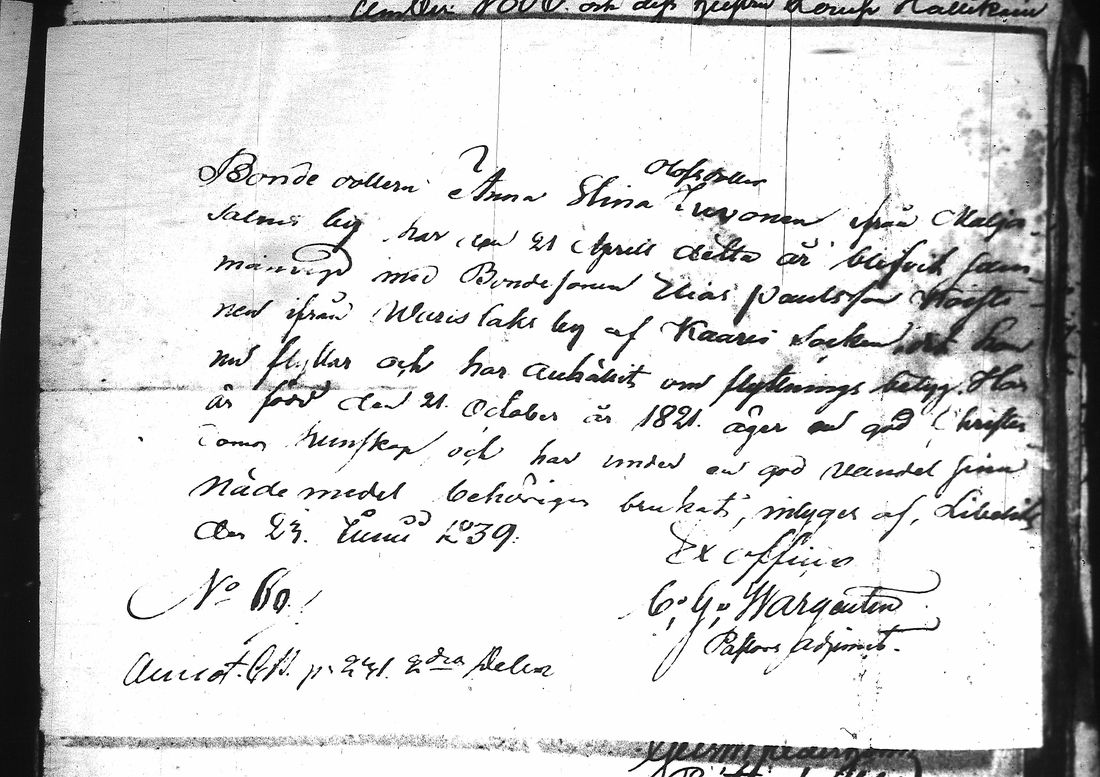 och dess hustru Lovisa
Olofsdotter
Bonde dottern Anna Elina Turonen ifrån Maljа-
salmi by har den 21 Aprill detta år blifvit sam-
manvigd med Bondesonen Elias Paulsson
nen ifrån Warislaks by af Kaavi socken dit hon
nu flyttar och har anhållit om flyttnings betyg. Hon
är född den 21. October år 1821. äger en god Christen-
doms kunskap och har under en god vandel sina
Nåde medel behörigen brukat, intygar af, Libelits
den 23. Junii 1839.
Ex officio
No 69
C. G. Wargentin
Pastors adjunct.
Annot. C.B. p. 231. 2dra Delen